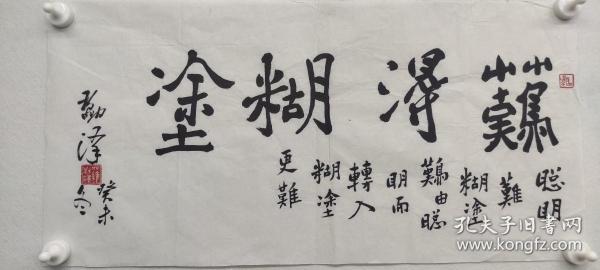 難得糊塗
聪明
難
糊塗
難由聪
明而
轉入
糊塗
更難
癸未冬
孔夫子旧书网
www.kongfz.com